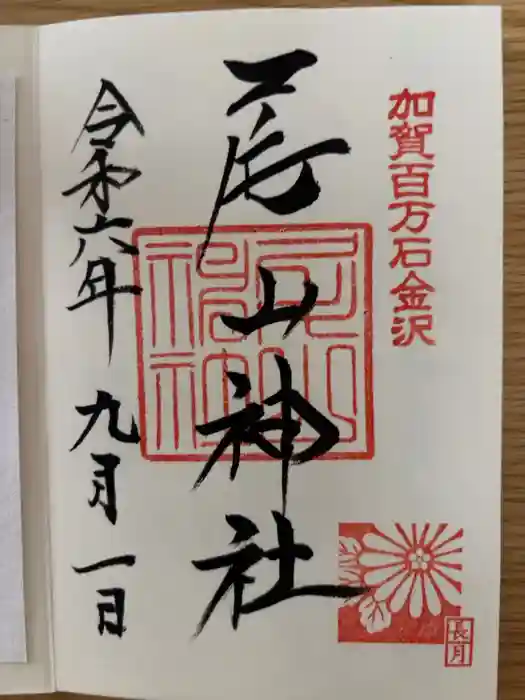 加賀百万石金沢
尾山神社
尾山神社
令和六年九月一日
長月